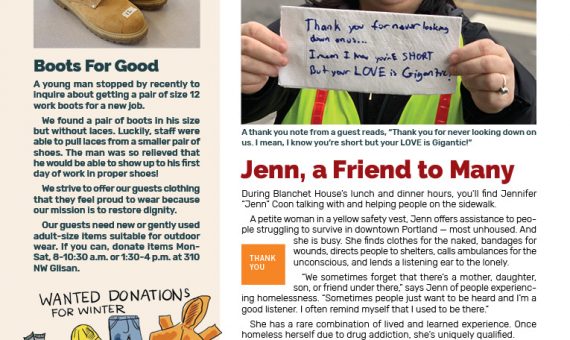 Boots For Good
A young man stopped by recently to
inquire about getting a pair of size 12
work boots for a new job.
We found a pair of boots in his size
but without laces. Luckily, staff were
able to pull laces from a smaller pair of
shoes. The man was so relieved that
he would be able to show up to his first
day of work in proper shoes!
We strive to offer our guests clothing
that they feel proud to wear because
our mission is to restore dignity.
Our guests need new or gently used
adult-size items suitable for outdoor
wear. If you can, donate items Mon-
Sat, 8-10:30 a.m. or 1:30-4 p.m. at 310
NW Glisan.
WANTED DONATIONS
FOR WINTER
Thank you for never looking
down on us...
I mean I know you're SHORT
But your LOVE is Gigantic!
A thank you note from a guest reads, "Thank you for never looking down on
us. I mean, I know you're short but your LOVE is Gigantic!"
Jenn, a Friend to Many
During Blanchet House's lunch and dinner hours, you'll find Jennifer
"Jenn" Coon talking with and helping people on the sidewalk.
A petite woman in a yellow safety vest, Jenn offers assistance to peo-
ple struggling to survive in downtown Portland — most unhoused. And
she is busy. She finds clothes for the naked, bandages for
wounds, directs people to shelters, calls ambulances for the
unconscious, and lends a listening ear to the lonely.
THANK
YOU
"We sometimes forget that there's a mother, daughter,
son, or friend under there," says Jenn of people experienc-
ing homelessness. "Sometimes people just want to be heard and I'm a
good listener. I often remind myself that I used to be there."
She has a rare combination of lived and learned experience. Once
homeless herself due to drug addiction, she's uniquely qualified.